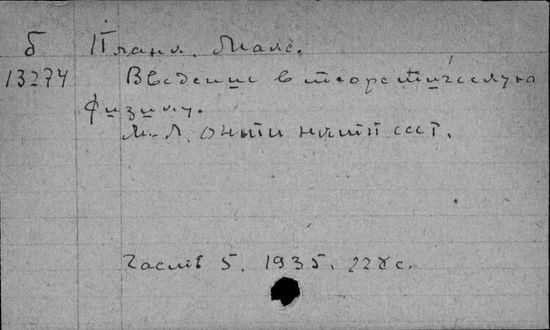 б Планк, Макс.
13274 Введение в теоретическую
физику.
М.-Л. ОНТИ НКТП СССР.
Часть 5. 1935. 228 с.